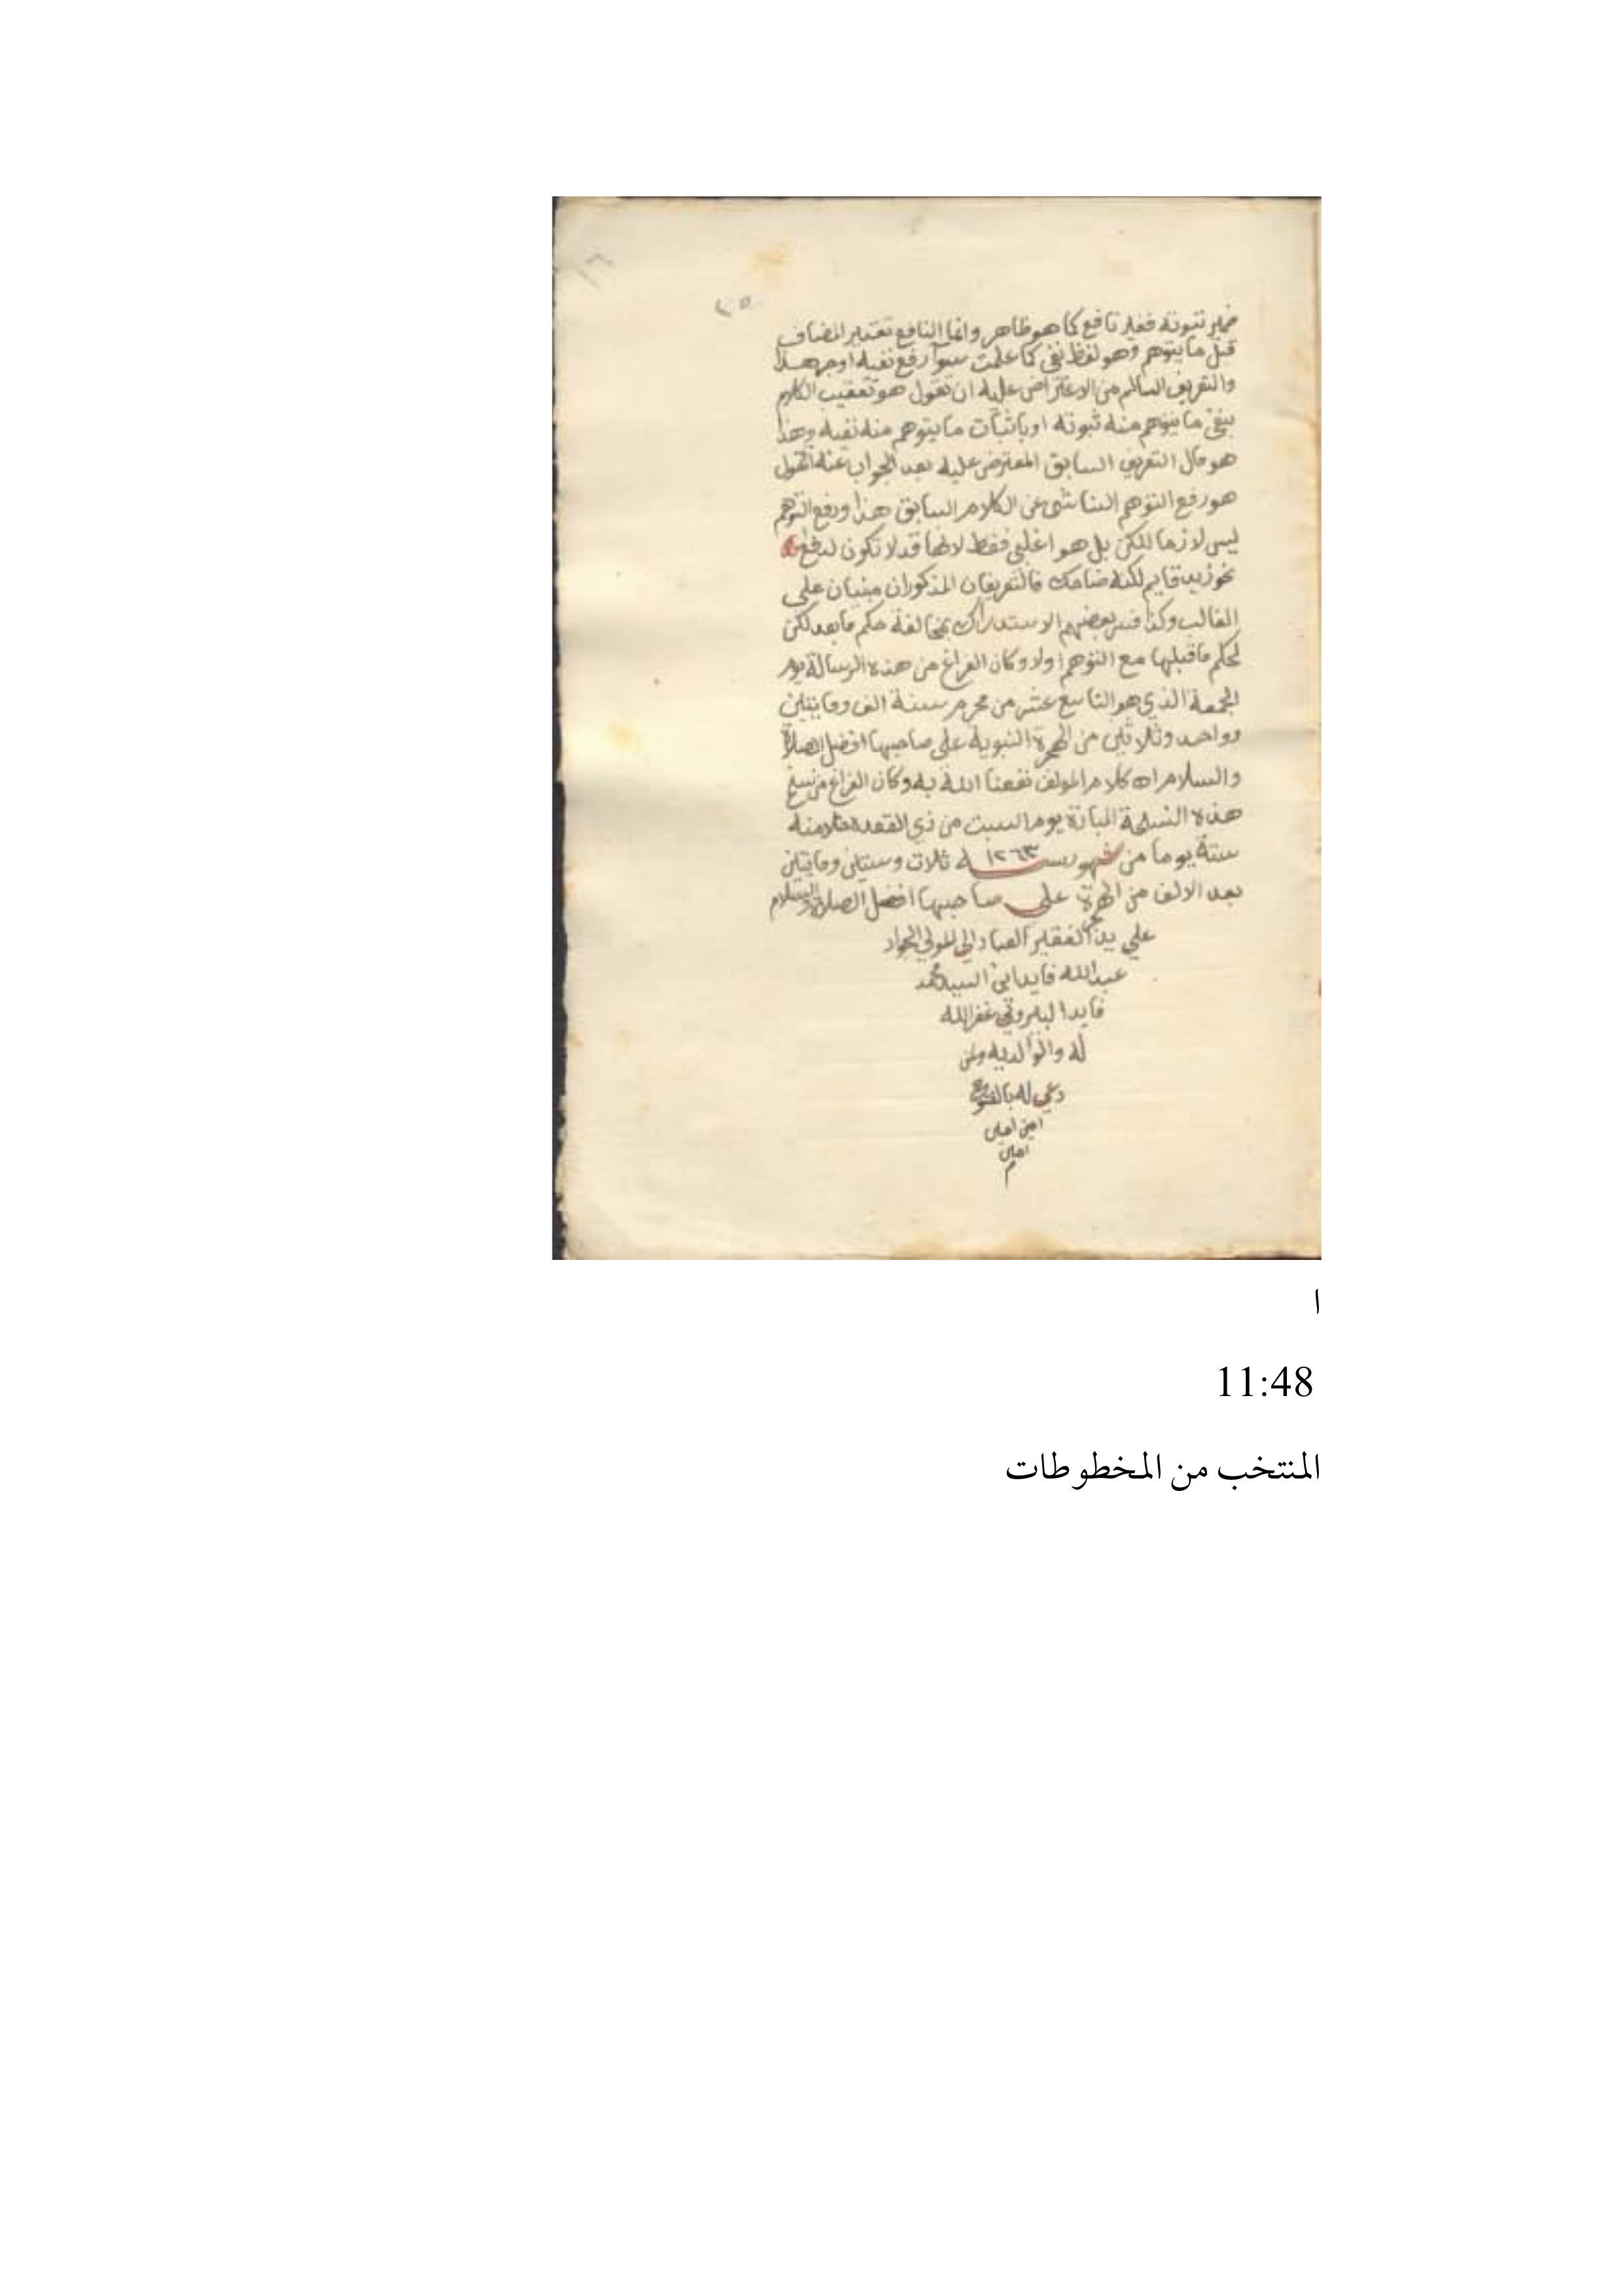 ٢٥
ضمير ثبوته فغير نافع كما هو ظاهر وانما النافع تقدير المضاف
قبل ما يتوهم وهو لفظ نفي كما علمت سوآ رفع نفيه او جر هذا
والتعريف السالم من الاعتراض عليه ان تقول هو تعقيب الكلام
بنفي ما يتوهم منه ثبوته او باثبات ما يتوهم منه نفيه وهذا
هو مآل التعريف السابق المعترض عليه بعد الجواب عنه
هو رفع التوهم الناشئ عن الكلام السابق هذا ورفع التوهم
ليس لازما للكن بل هو اغلبي فقط لانها قد لا تكون لدفع
نحو زيد قايم لكنه ضاحك فالتعريفان المذكوران مبنيان على
الغالب وكذا فسر بعضهم الاستدراك بمخالفة حكم ما بعد لكن
لحكم ما قبلها مع التوهم اولا وكان الفراغ من هذه الرسالة يوم
الجمعة الذي هو التاسع عشر من محرم سنة الف ومايتين
وواحد وثلاثين من الهجرة النبوية على صاحبها افضل الصلاة
والسلام اه كلام المولف نفعنا الله به وكان الفراغ من نسخ
هذه النسخة يوم السبت من ذي القعده خلا منه
ستة يوما من شهور سنة ١٢٦٣ ثلاث وستين ومايتين
بعد الالف من الهجرة على صاحبها افضل الصلاة والسلام
علي يد الفقير الى المولي الجواد
عبد الله فايد ابن السيد محمد
فايد البيروتي غفر الله
له والوالديه ولمن
دعي له بالفتوح
امين امين
امين
م
ا
11:48
المنتخب من المخطوطات